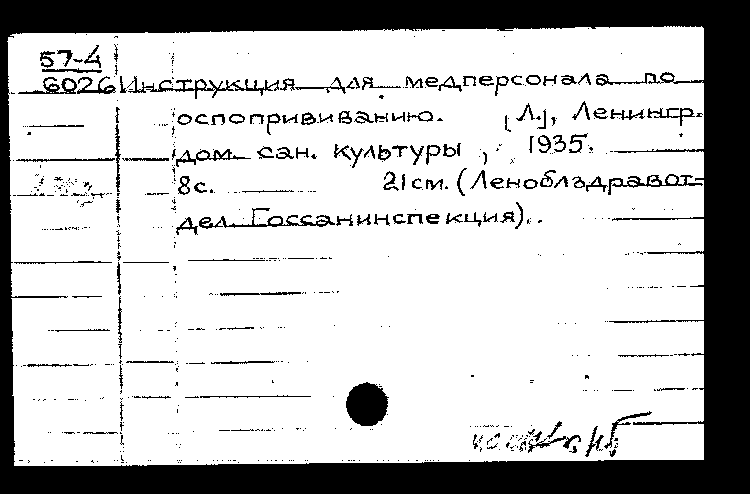 57-4
6026 Инструкция для медперсонала по
оспопрививанию. [Л.], Ленингр.
дом сан. культуры, 1935.
8с. 21см. (Леноблздравот=
дел. Госсанинспекция)..